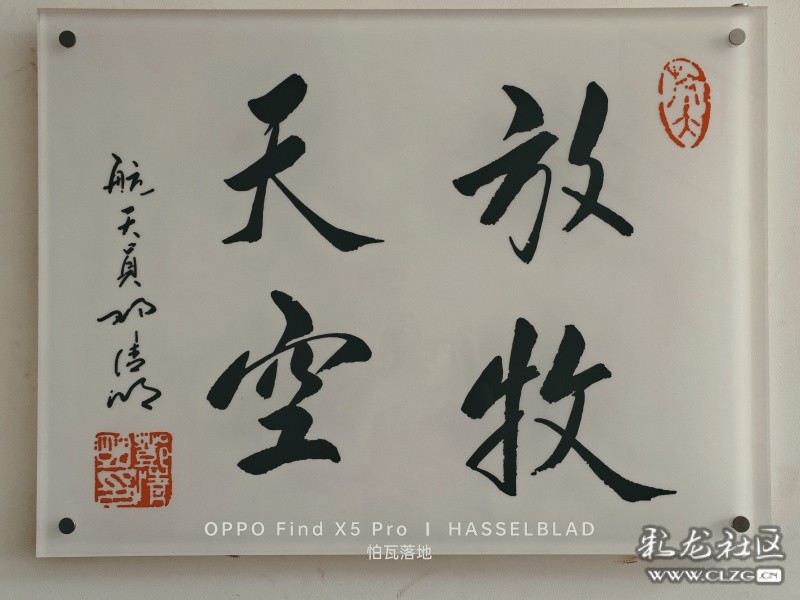 放牧
天空
航天员邓清明
OPPO Find X5 Pro | HASSELBLAD
怕瓦落地
彩龙社区
WWW.CLZG.CN